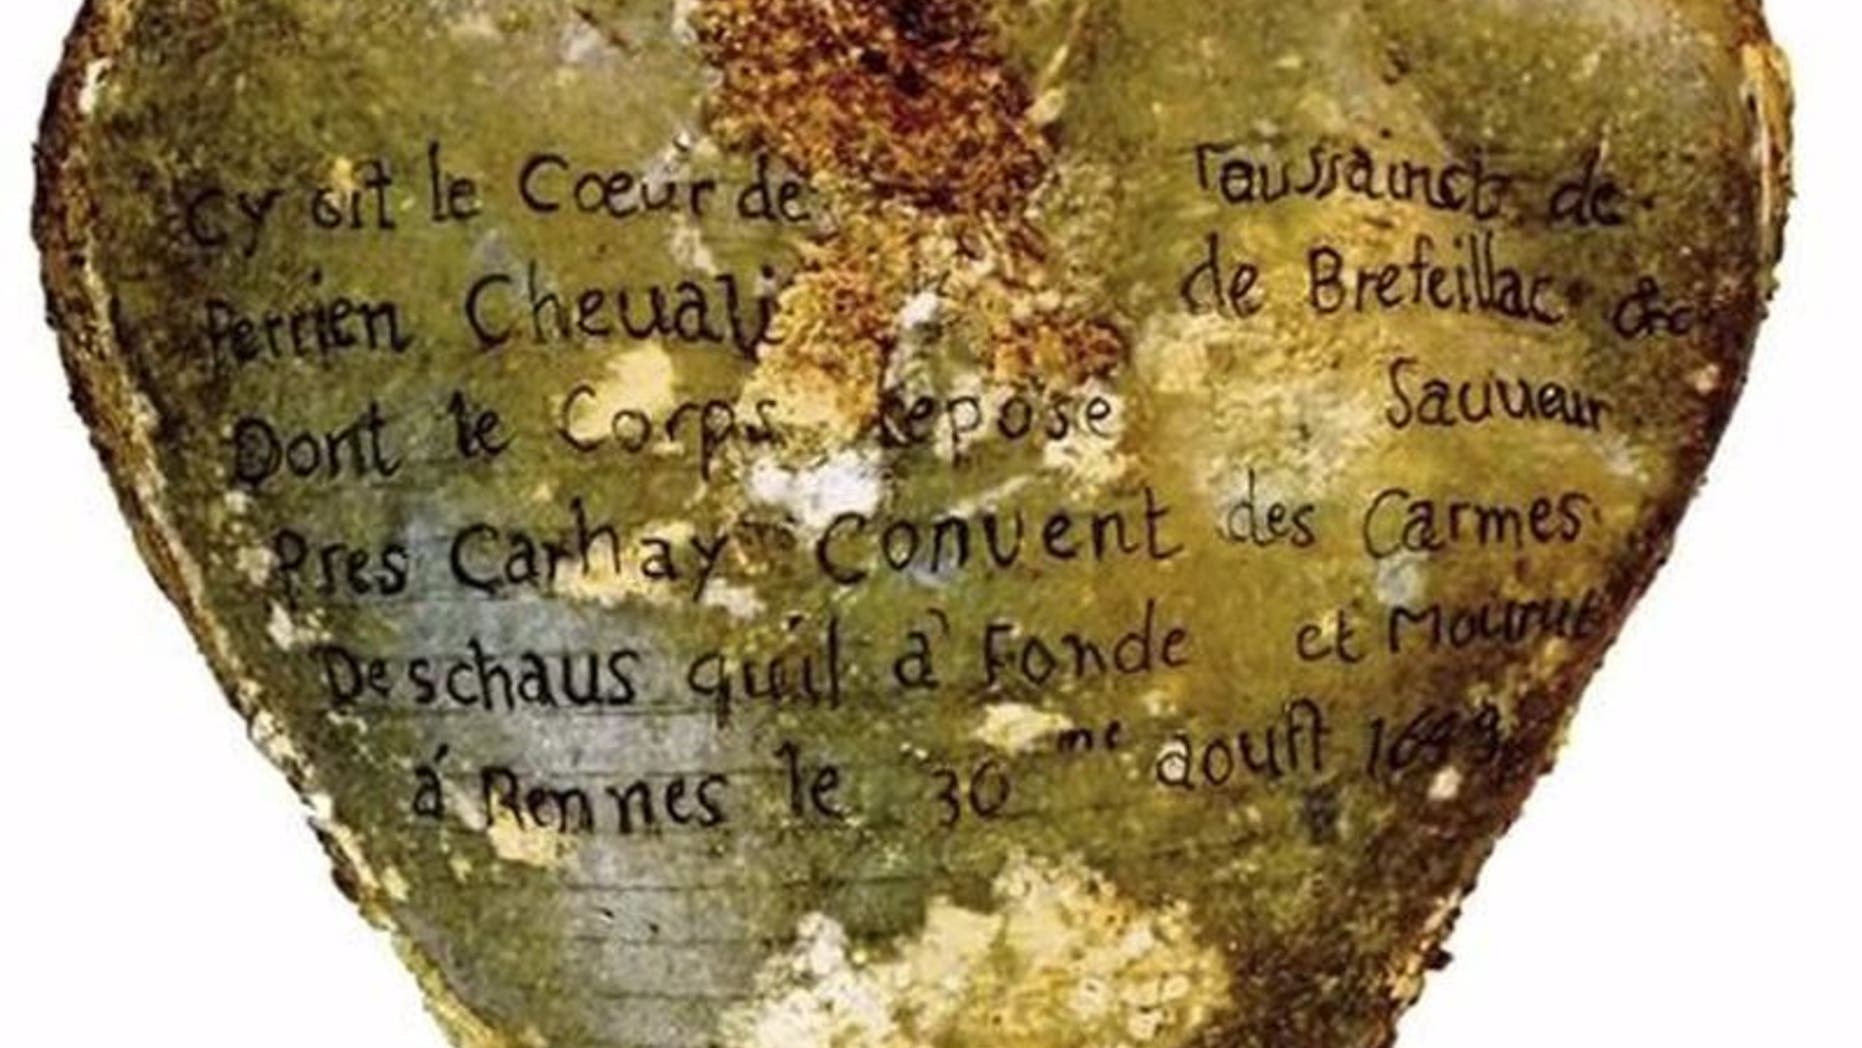 Cy Git le Cœur de Toussainct de
Perrien Cheuali de Brefeillac &c
Dont le Corps repose Sauueur
Pres Carhay Conuent des Carmes
Deschaus quil à Fonde et Mourut
á Rennes le 30me aoust 1649